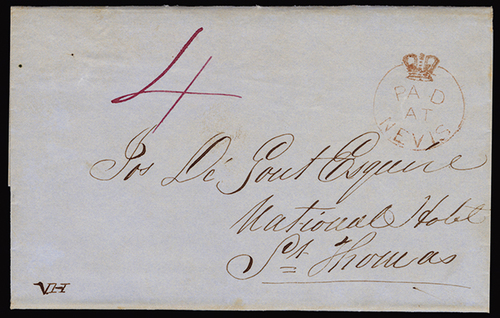 4
PAID
AT
NEVIS
Jos Di Gout Esquire
National Hotel
St. Thomas
VH